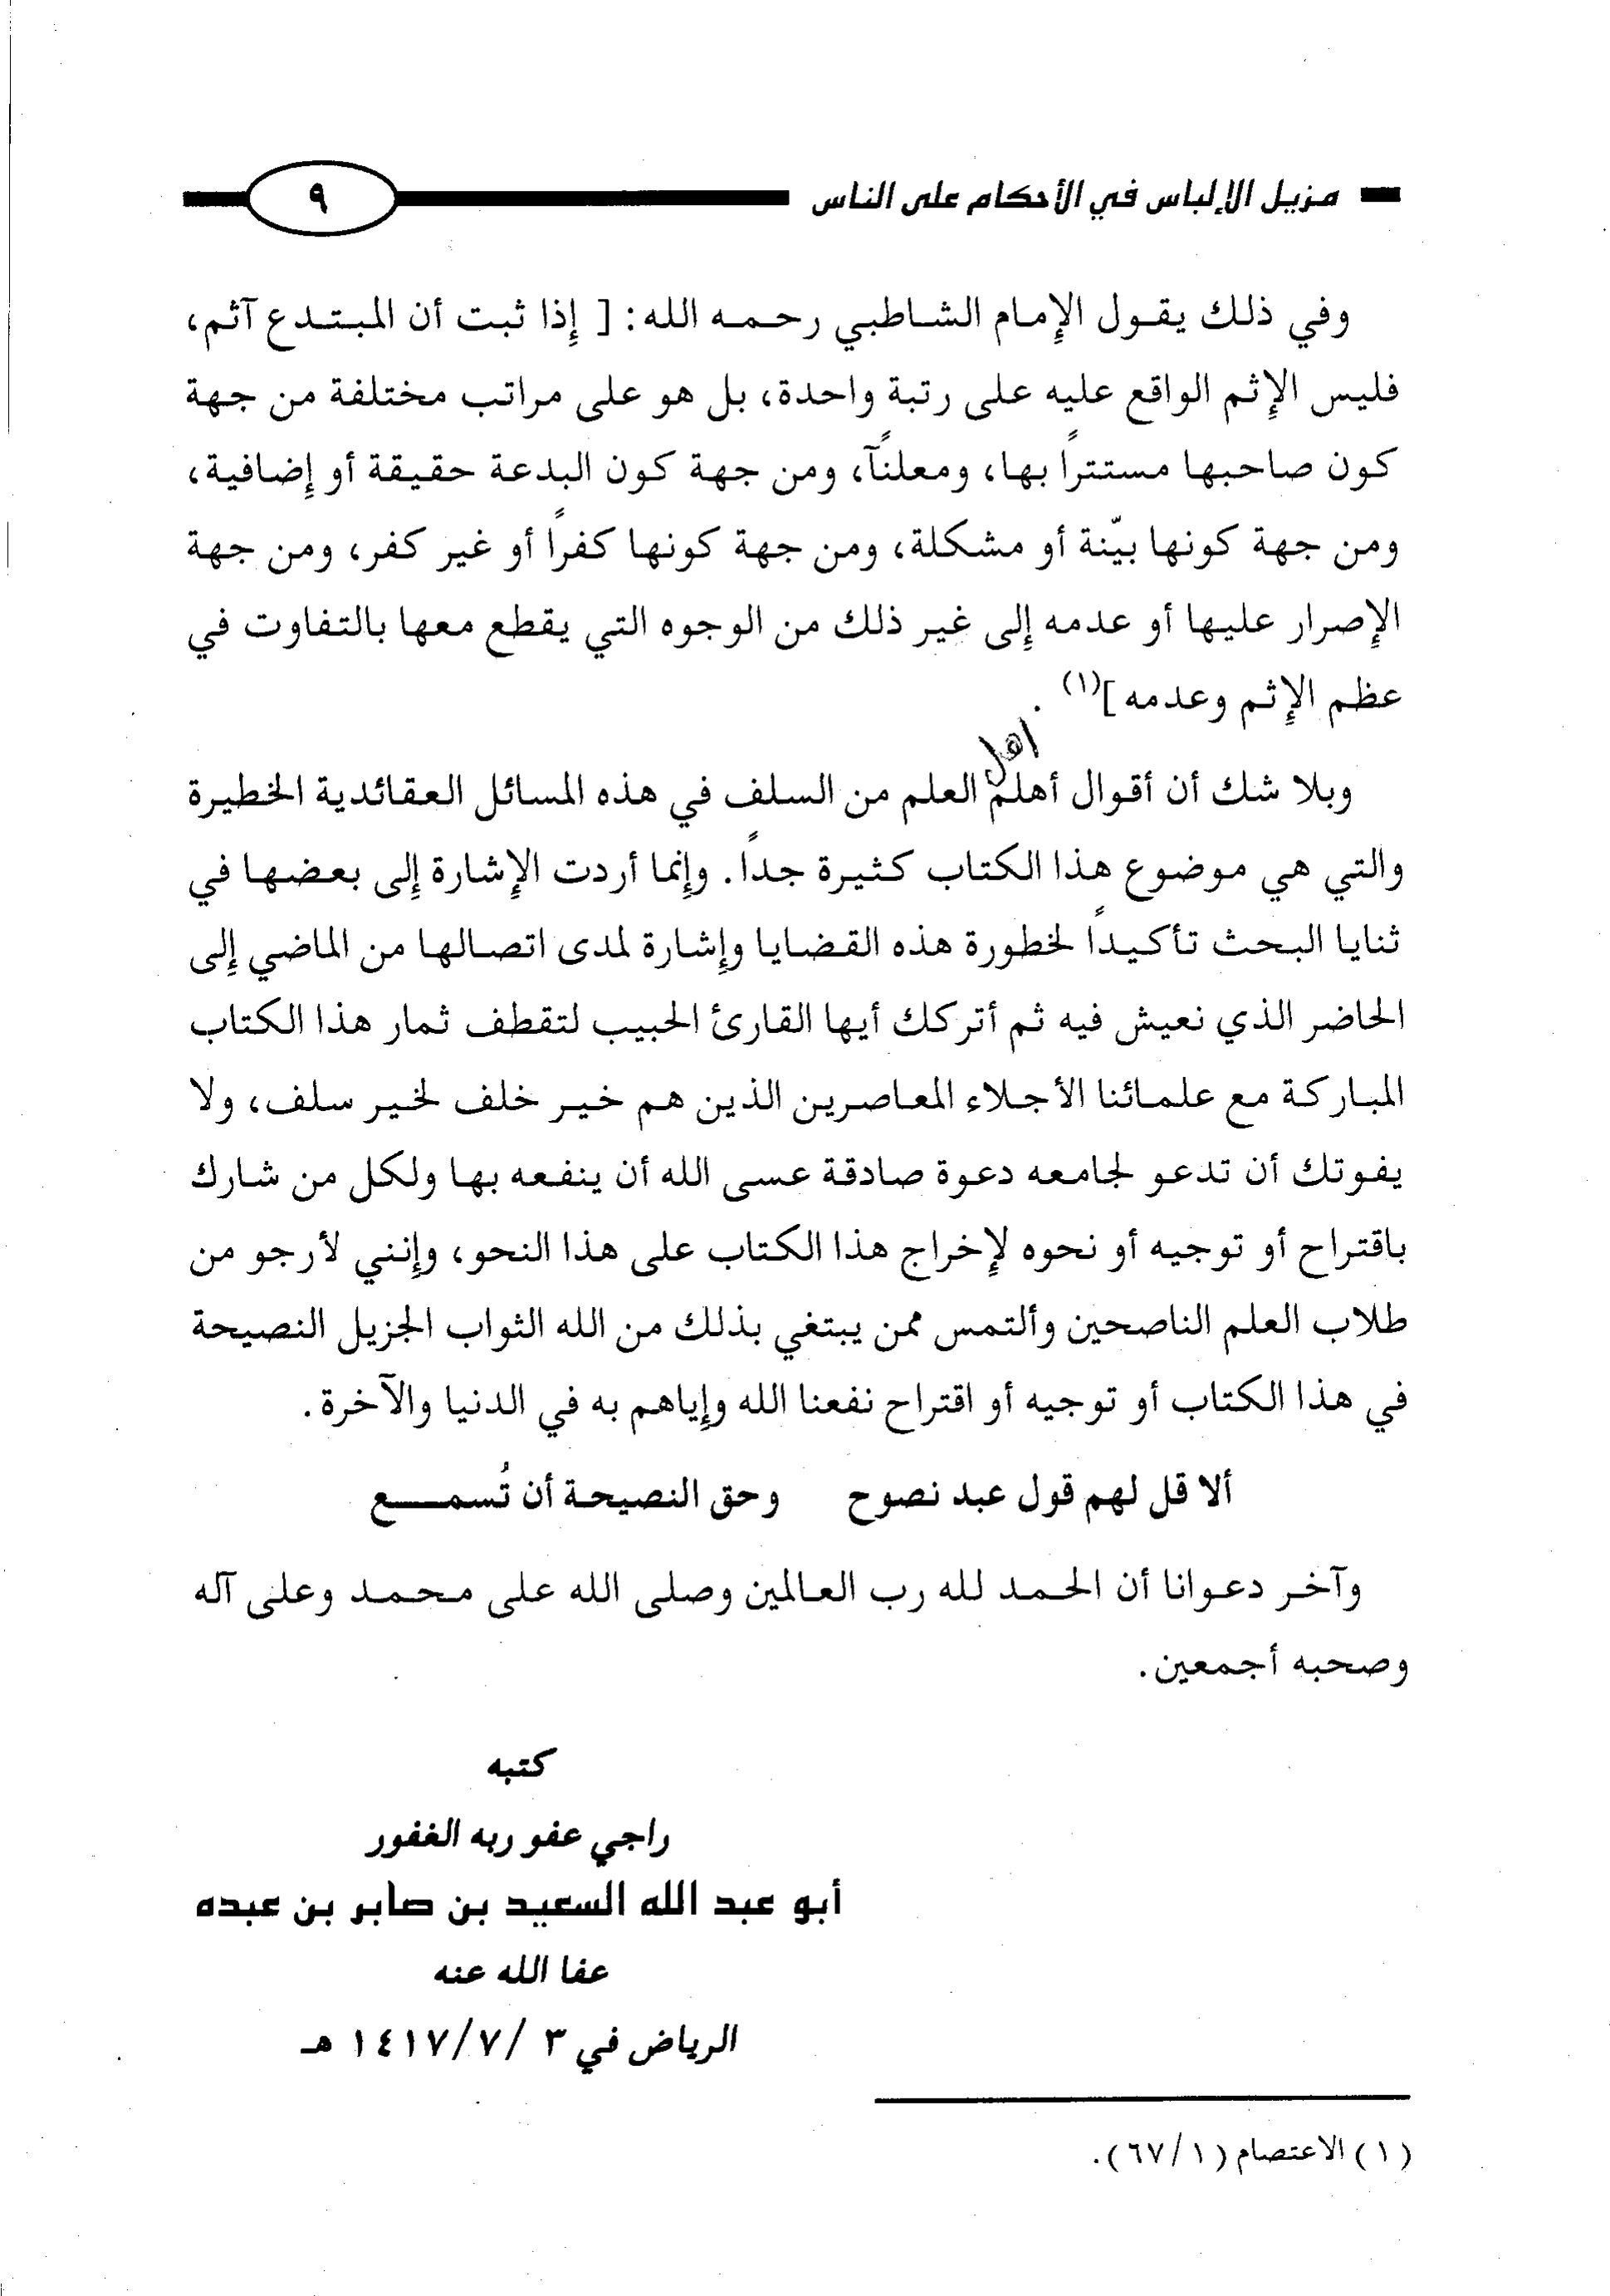 مزيل الإلباس في الأحكام على الناس ٩
وفي ذلك يقول الإمام الشاطبي رحمه الله: [ إذا ثبت أن المبتدع آثم،
فليس الإثم الواقع عليه على رتبة واحدة، بل هو على مراتب مختلفة من جهة
كون صاحبها مستتراً بها، ومعلنًآ، ومن جهة كون البدعة حقيقة أو إضافية،
ومن جهة كونها بيّنة أو مشكلة، ومن جهة كونها كفراً أو غير كفر، ومن جهة
الإصرار عليها أو عدمه إلى غير ذلك من الوجوه التي يقطع معها بالتفاوت في
عظم الإثم وعدمه ](١) .
اهل
وبلا شك أن أقوال أهلم العلم من السلف في هذه المسائل العقائدية الخطيرة
والتي هي موضوع هذا الكتاب كثيرة جداً. وإنما أردت الإشارة إلى بعضها في
ثنايا البحث تأكيداً لخطورة هذه القضايا وإشارة لمدى اتصالها من الماضي إلى
الحاضر الذي نعيش فيه ثم أتركك أيها القارئ الحبيب لتقطف ثمار هذا الكتاب
المباركة مع علمائنا الأجلاء المعاصرين الذين هم خير خلف لخير سلف، ولا
يفوتك أن تدعو لجامعه دعوة صادقة عسى الله أن ينفعه بها ولكل من شارك
باقتراح أو توجيه أو نحوه لإخراج هذا الكتاب على هذا النحو، وإنني لأرجو من
طلاب العلم الناصحين وألتمس ممن يبتغي بذلك من الله الثواب الجزيل النصيحة
في هذا الكتاب أو توجيه أو اقتراح نفعنا الله وإياهم به في الدنيا والآخرة.
ألا قل لهم قول عبد نصوح وحق النصيحة أن تُسمـــع
وآخر دعوانا أن الحمد لله رب العالمين وصلى الله على محمد وعلى آله
وصحبه أجمعين.
كتبه
راجي عفو ربه الغفور
أبو عبد الله السعيد بن صابر بن عبده
عفا الله عنه
الرياض في ٣ /١٤١٧/٧ هـ
(١) الاعتصام (٦٧/١).